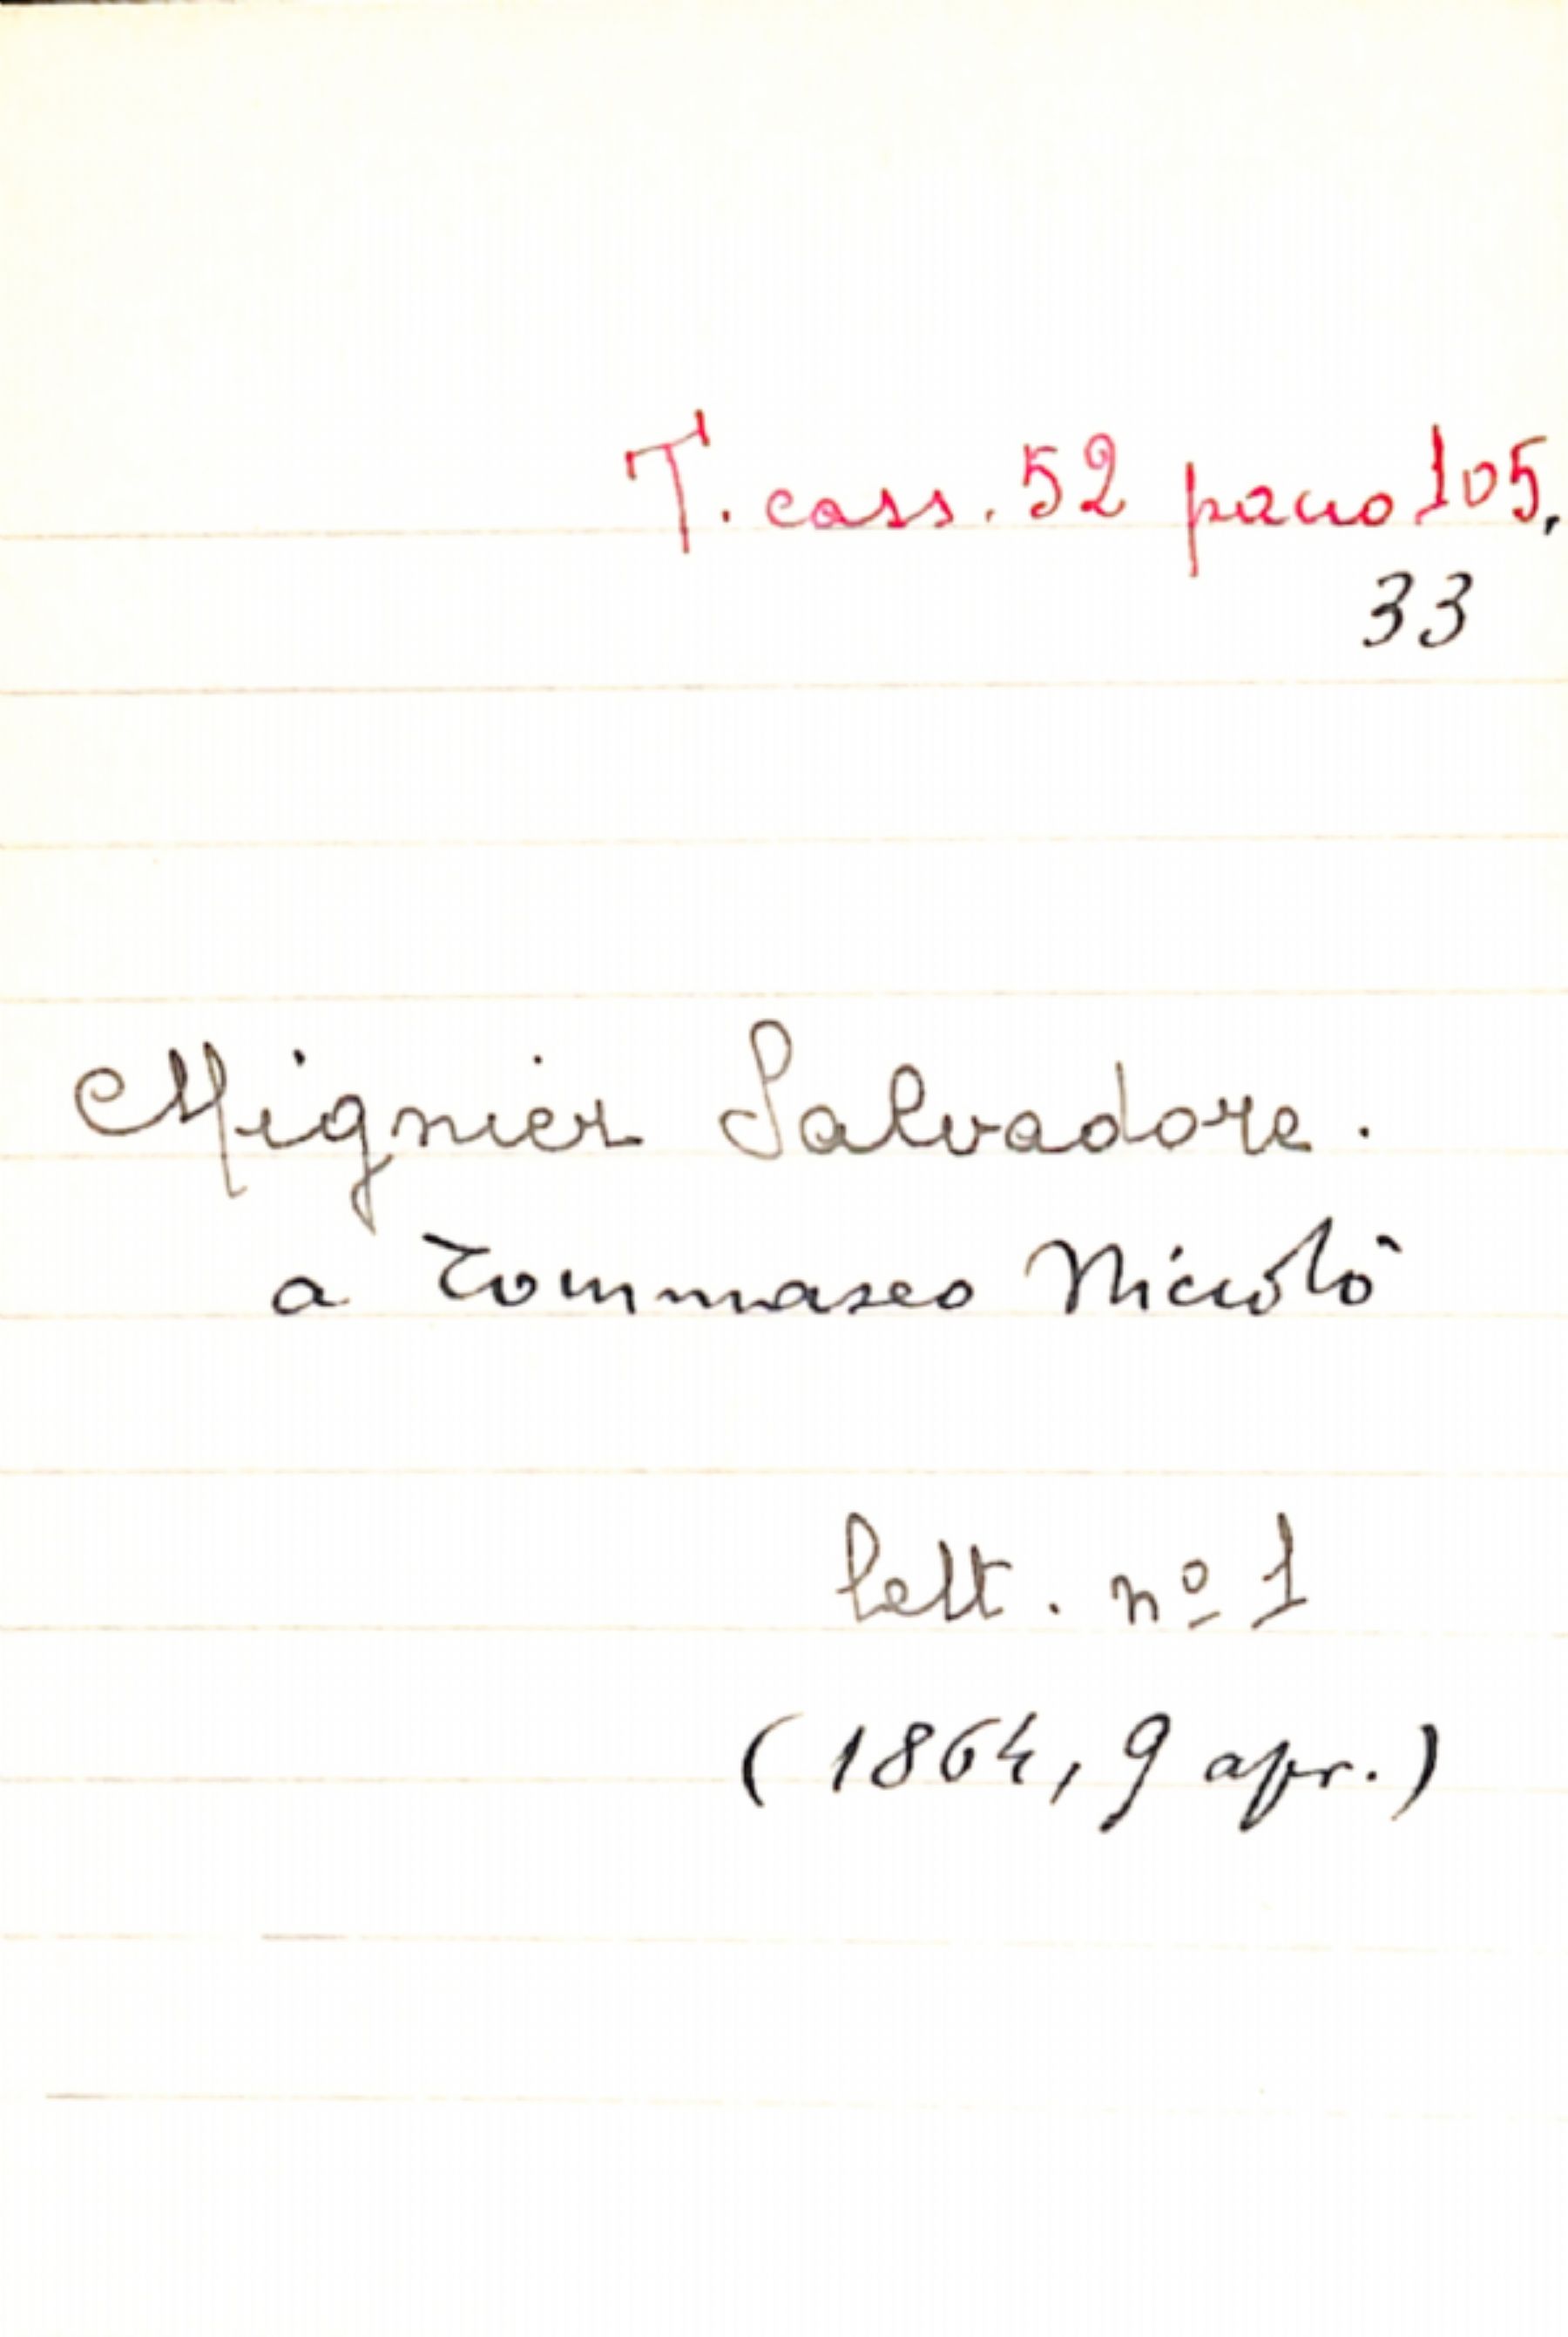 T. cass. 52 pacco 105,
33
Mignier Salvadore.
a Tommaseo Niccolò
lett. nº 1
(1864, 9 apr.)